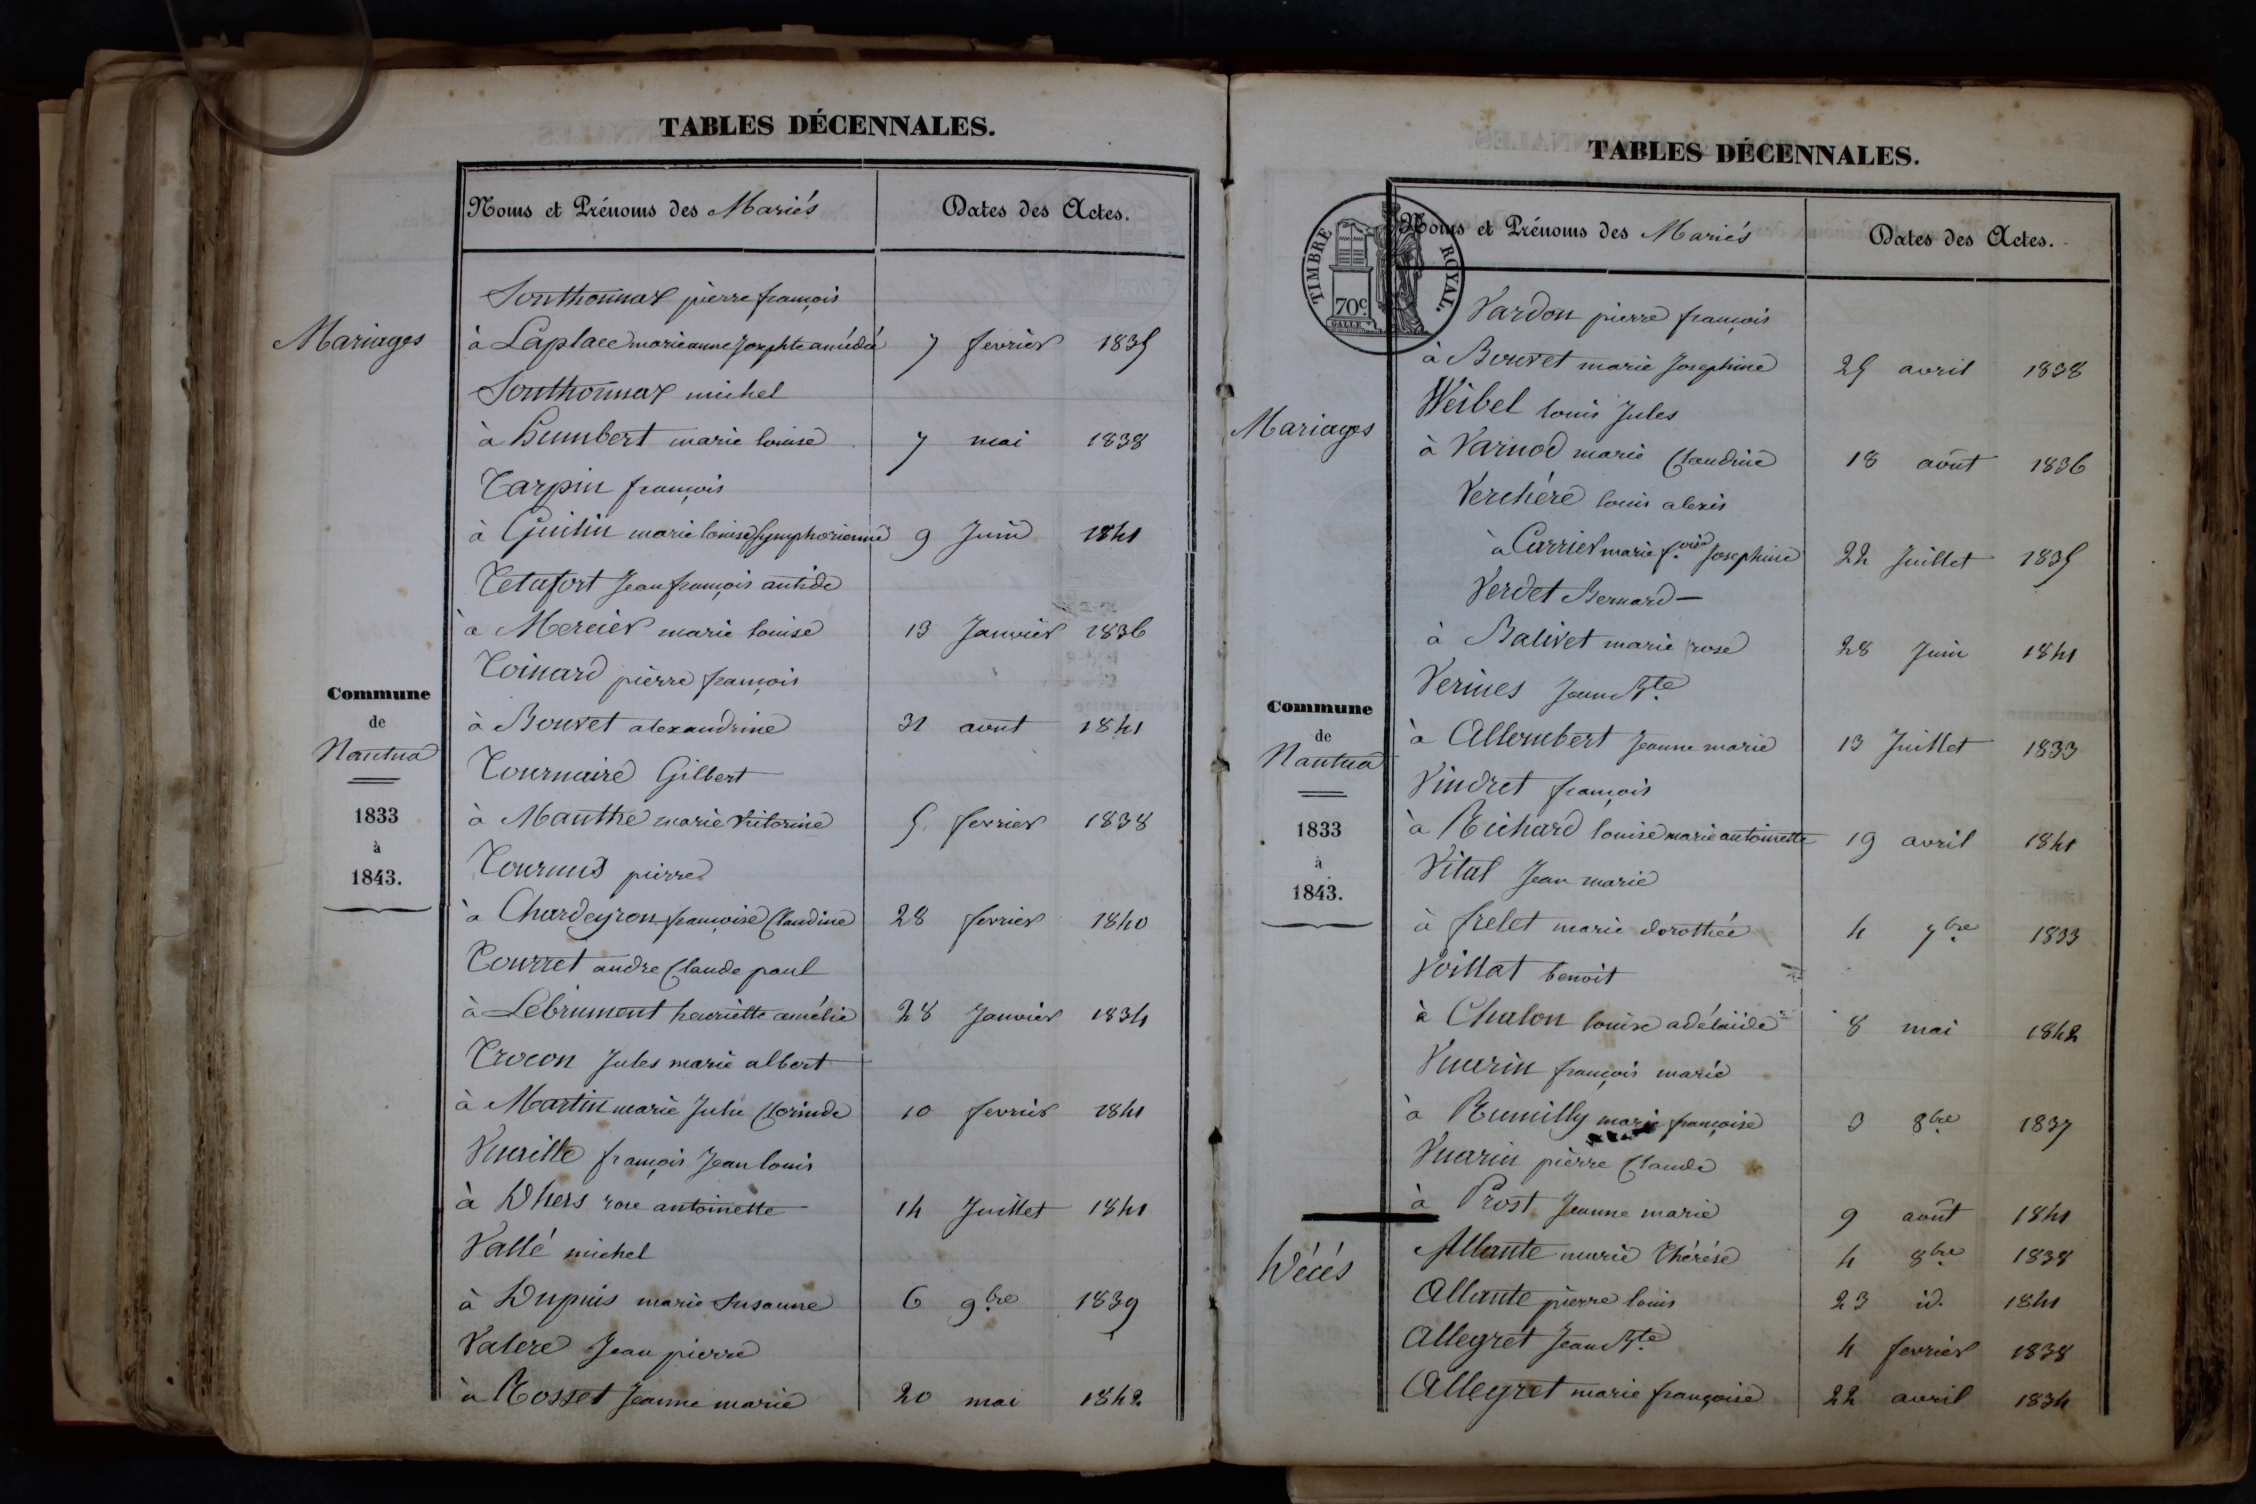 TABLES DÉCENNALES.
Noms et Prénoms des Mariés Dates des Actes.
Mariages
Commune
de
Nantua
1833
à
1843.
Sonthonnax pierre françois
à Laplace marie anne Josephte amédée 7 fevrier 1835
Sonthonnax michel
à Humbert marie louise 7 mai 1838
Tarpin françois
à Guitin marie louise Symphorienne 9 Juin 1841
Tetafort Jean françois antide
à Mercier marie louise 13 Janvier 1836
Toinard pierre françois
à Bouvet alexandrine 31 aout 1841
Tournaire Gilbert
à Manthe marie Victorine 5 fevrier 1838
Tournus pierre
à Chardeyron françoise Claudine 28 fevrier 1840
Tourret andre Claude paul
à Lebrument henriette amélie 28 Janvier 1834
Trocon Jules marie albert
à Martin marie Julie Clorinde 10 fevrier 1841
Vuaille françois Jean louis
à Dhers rose antoinette 14 Juillet 1841
Vallé michel
à Dupuis marie Susanne 6 9bre 1839
Valere Jean pierre
à Rosset Jeanne marie 20 mai 1842
TABLES DÉCENNALES.
TIMBRE ROYAL.
70c
Noms et Prénoms des Mariés Dates des Actes.
Mariages
Commune
de
Nantua
1833
à
1843.
Vardon pierre françois
à Bouvet marie Josephine 25 avril 1838
Weibel louis Jules
à Varnod marie Claudine 18 août 1836
Verchére louis alexis
à Carrier marie foise Josephine 22 Juillet 1835
Verdet Bernard
à Balivet marie rose 28 Juin 1841
Verines Jean Bte
à Allombert Jeanne marie 13 Juillet 1833
Vindret françois
à Richard louise marie antoinette 19 avril 1841
Vital Jean marie
à frelet marie dorothée 4 7bre 1833
Voillat benoit
à Chalon louise adélaïde 8 mai 1842
Vuarin françois marie
à Rumilly marie françoise 3 8bre 1837
Vuarin pierre Claude
à Prost Jeanne marie 9 août 1841
Décés
Allante marie Thérése 4 8bre 1838
Allante pierre louis 23 id. 1841
Allegret Jean Bte 4 fevrier 1838
Allegret marie françoise 22 avril 1834